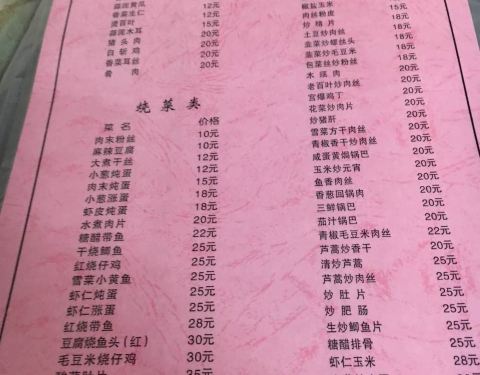 蒜泥黄瓜 12元
香菜生仁 12元
烫百叶 15元
蒜泥木耳 20元
猪头肉 20元
白斩鸡 20元
香菜耳丝 20元
肴肉 20元
烧菜类
菜名 价格
肉末粉丝 10元
麻辣豆腐 10元
大煮干丝 12元
小葱炖蛋 12元
肉末炖蛋 15元
小葱涨蛋 18元
虾皮炖蛋 18元
水煮肉片 20元
糖醋带鱼 22元
干烧鲫鱼 25元
红烧仔鸡 25元
雪菜小黄鱼 25元
虾仁炖蛋 25元
虾仁涨蛋 25元
红烧带鱼 28元
豆腐烧鱼头(红) 30元
毛豆米烧仔鸡 30元
35元
椒盐玉米 15元
肉丝粉皮 18元
炒精片 18元
土豆炒肉丝 18元
韭菜炒螺头 18元
韭菜炒毛豆米 18元
包菜丝炒粉丝 18元
木须肉 20元
老百叶炒肉丝 20元
宫爆鸡丁 20元
花菜炒肉片 20元
炒猪肝 20元
雪菜方干肉丝 20元
青椒香干炒肉丝 20元
咸蛋黄焗锅巴 20元
玉米炒元宵 20元
鱼香肉丝 20元
香葱回锅肉 20元
三鲜锅巴 20元
茄汁锅巴 20元
青椒毛豆米肉丝 22元
芦蒿炒香干 20元
清炒芦蒿 25元
芦蒿炒肉丝 25元
炒肚片 25元
炒肥肠 25元
生炒鲫鱼片 25元
糖醋排骨 25元
虾仁玉米 28元